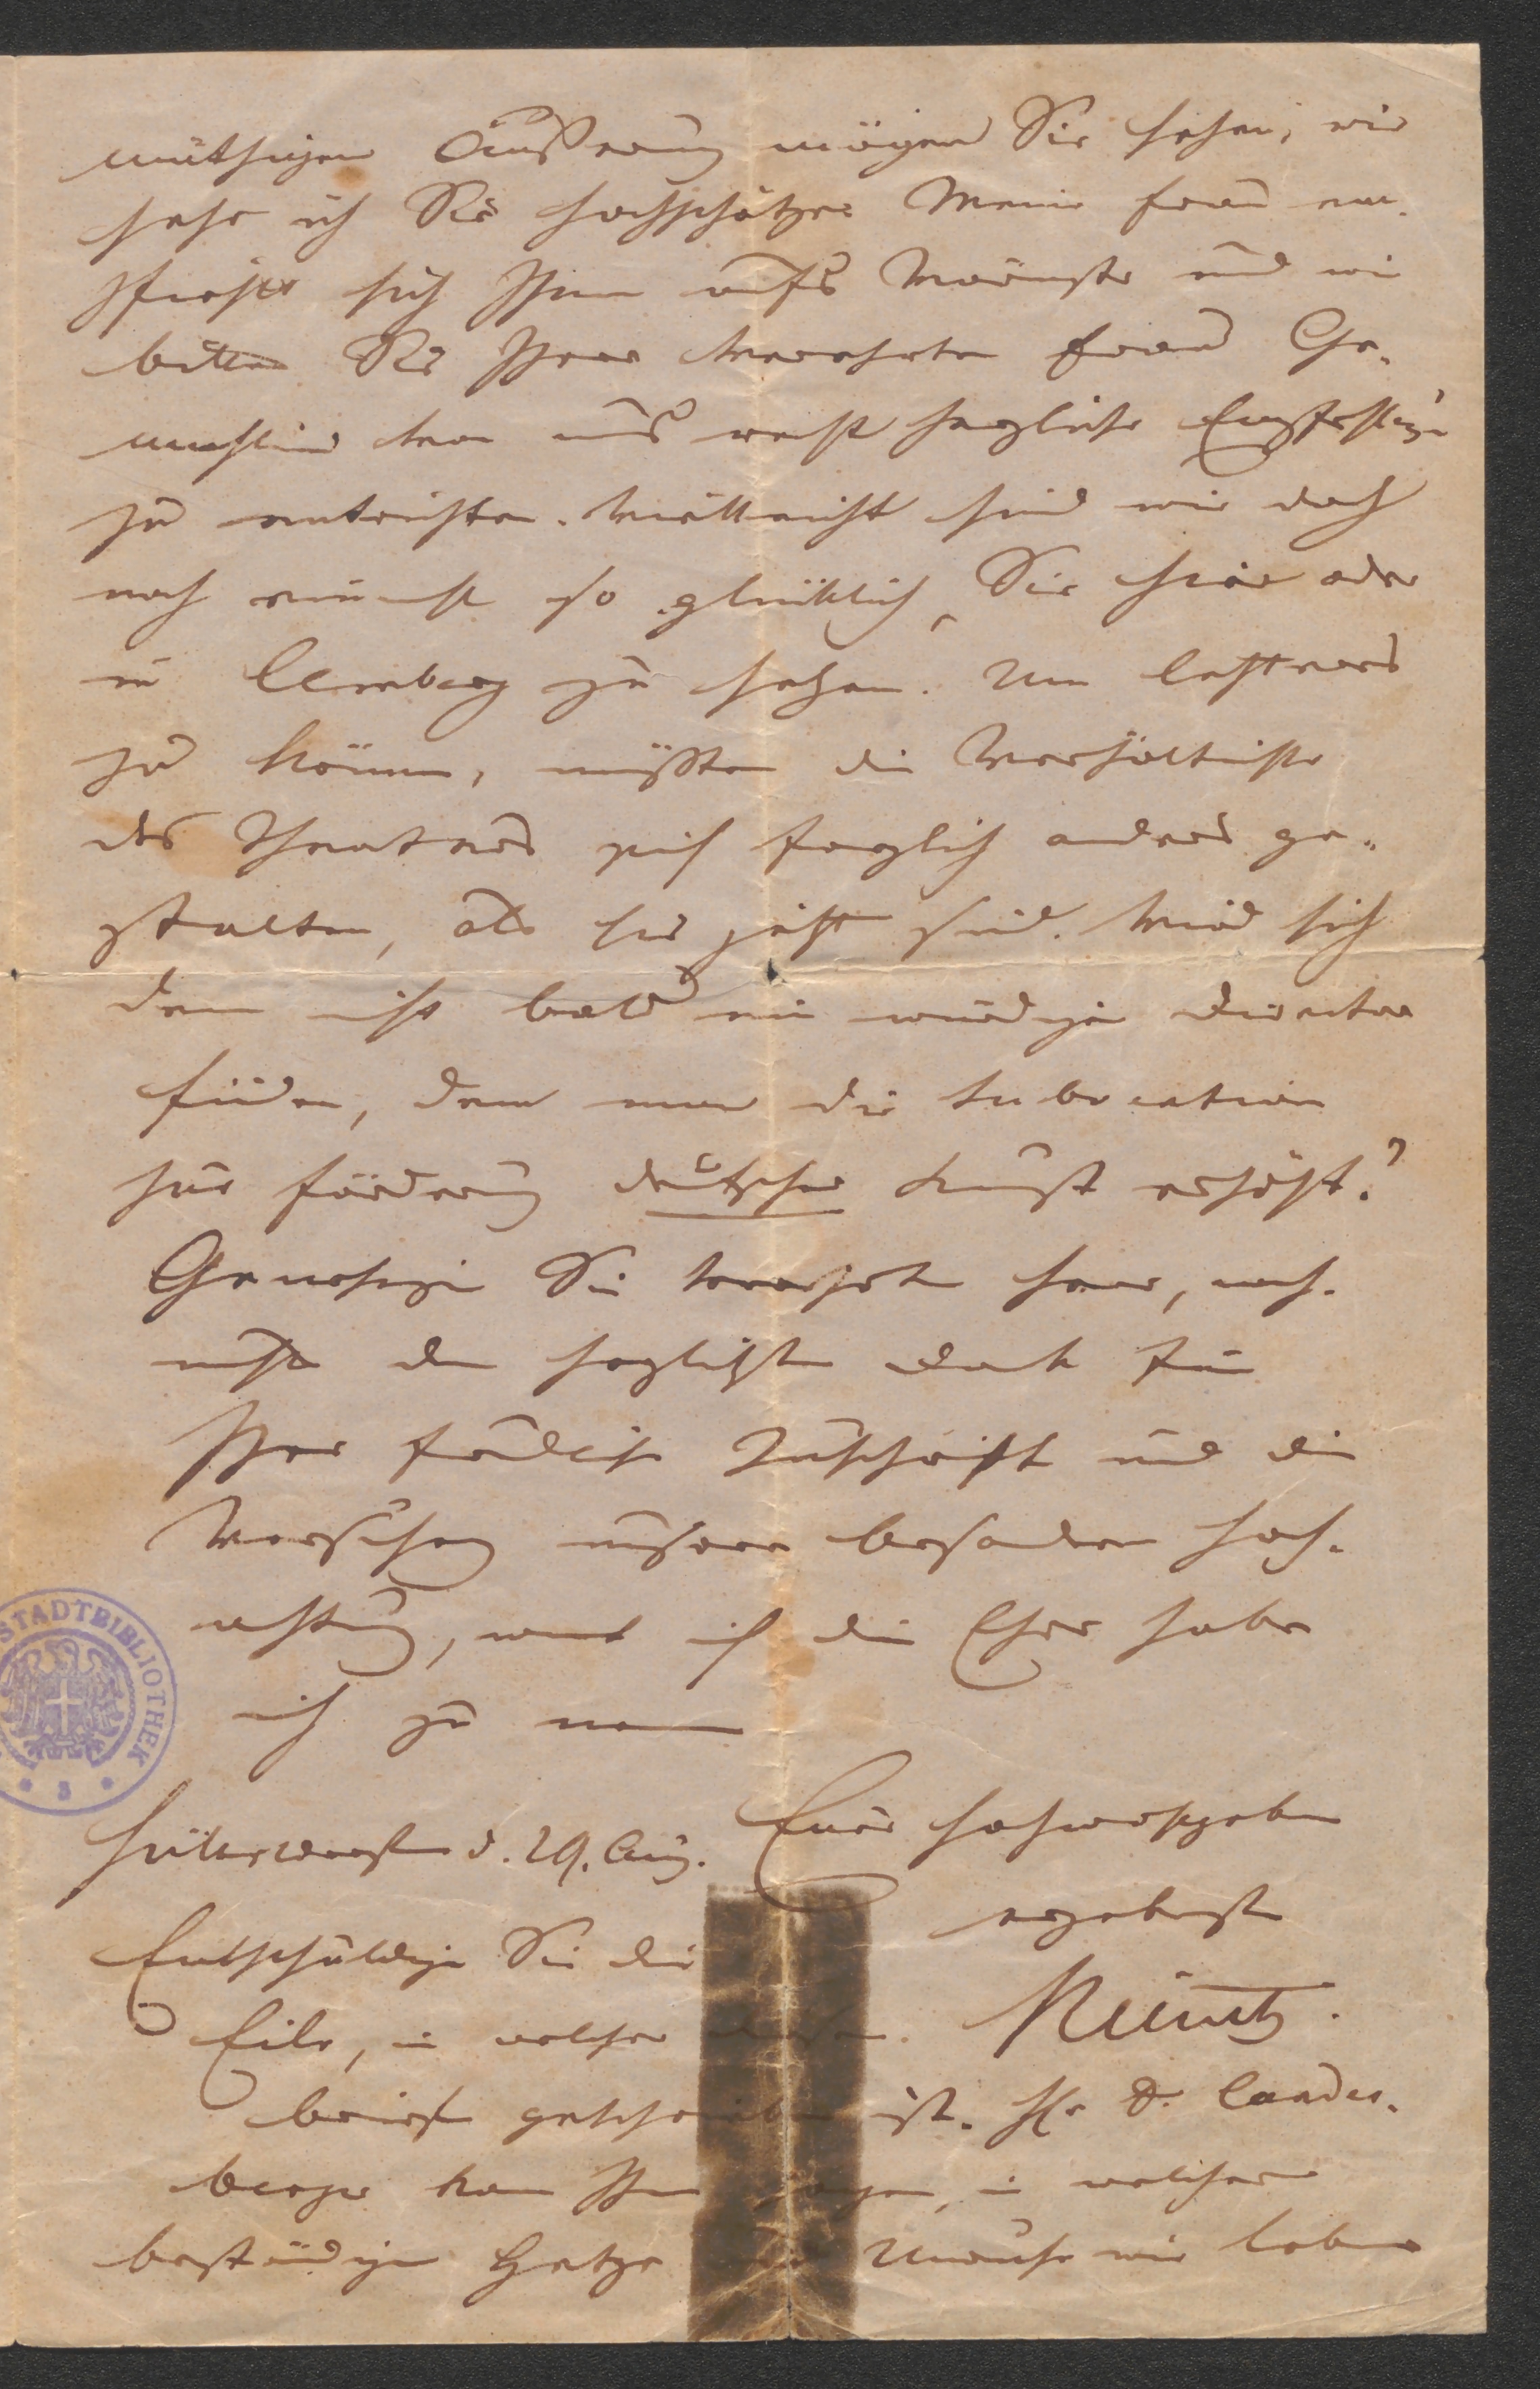 müthigen Äußerung mögen Sie sehen, wie
sehr ich Sie hochschätze. Meine Frau em-
pfiehlt sich Ihnen aufs Wärmste und wir
bitten Sie Ihrer verehrten Frau Ge-
mahlin von uns recht herzliche Empfehlungen
zu entrichten. Vielleicht sind wir doch
noch einmal so glücklich, Sie hier oder
in Lemberg zu sehen. Um letzteres
zu können, müßten die Verhältnisse
des Theaters sich freilich anders ge-
stalten, als sie jetzt sind. Wird sich
denn nicht bald ein würdiger Director
finden, dem man die Subvention
zur Förderung deutscher Kunst erhöht?
Genehmigen Sie verehrter Herr, noch-
mals den herzlichsten Dank für
Ihre freundliche Zuschrift und die
Versicherung unserer besonderen Hoch-
achtung, womit ich die Ehre habe
mich zu nennen
Euer Hochwohlgeboren
d. 29. Aug.
ergebenster
Entschuldigen Sie die
Eile, in welcher dieser
Brief geschrieben ist. Hr Dr. Landes-
berger kann Ihnen sagen, in welcher
beständigen Hetze und Unruhe wir leben
STADTBIBLIOTHEK